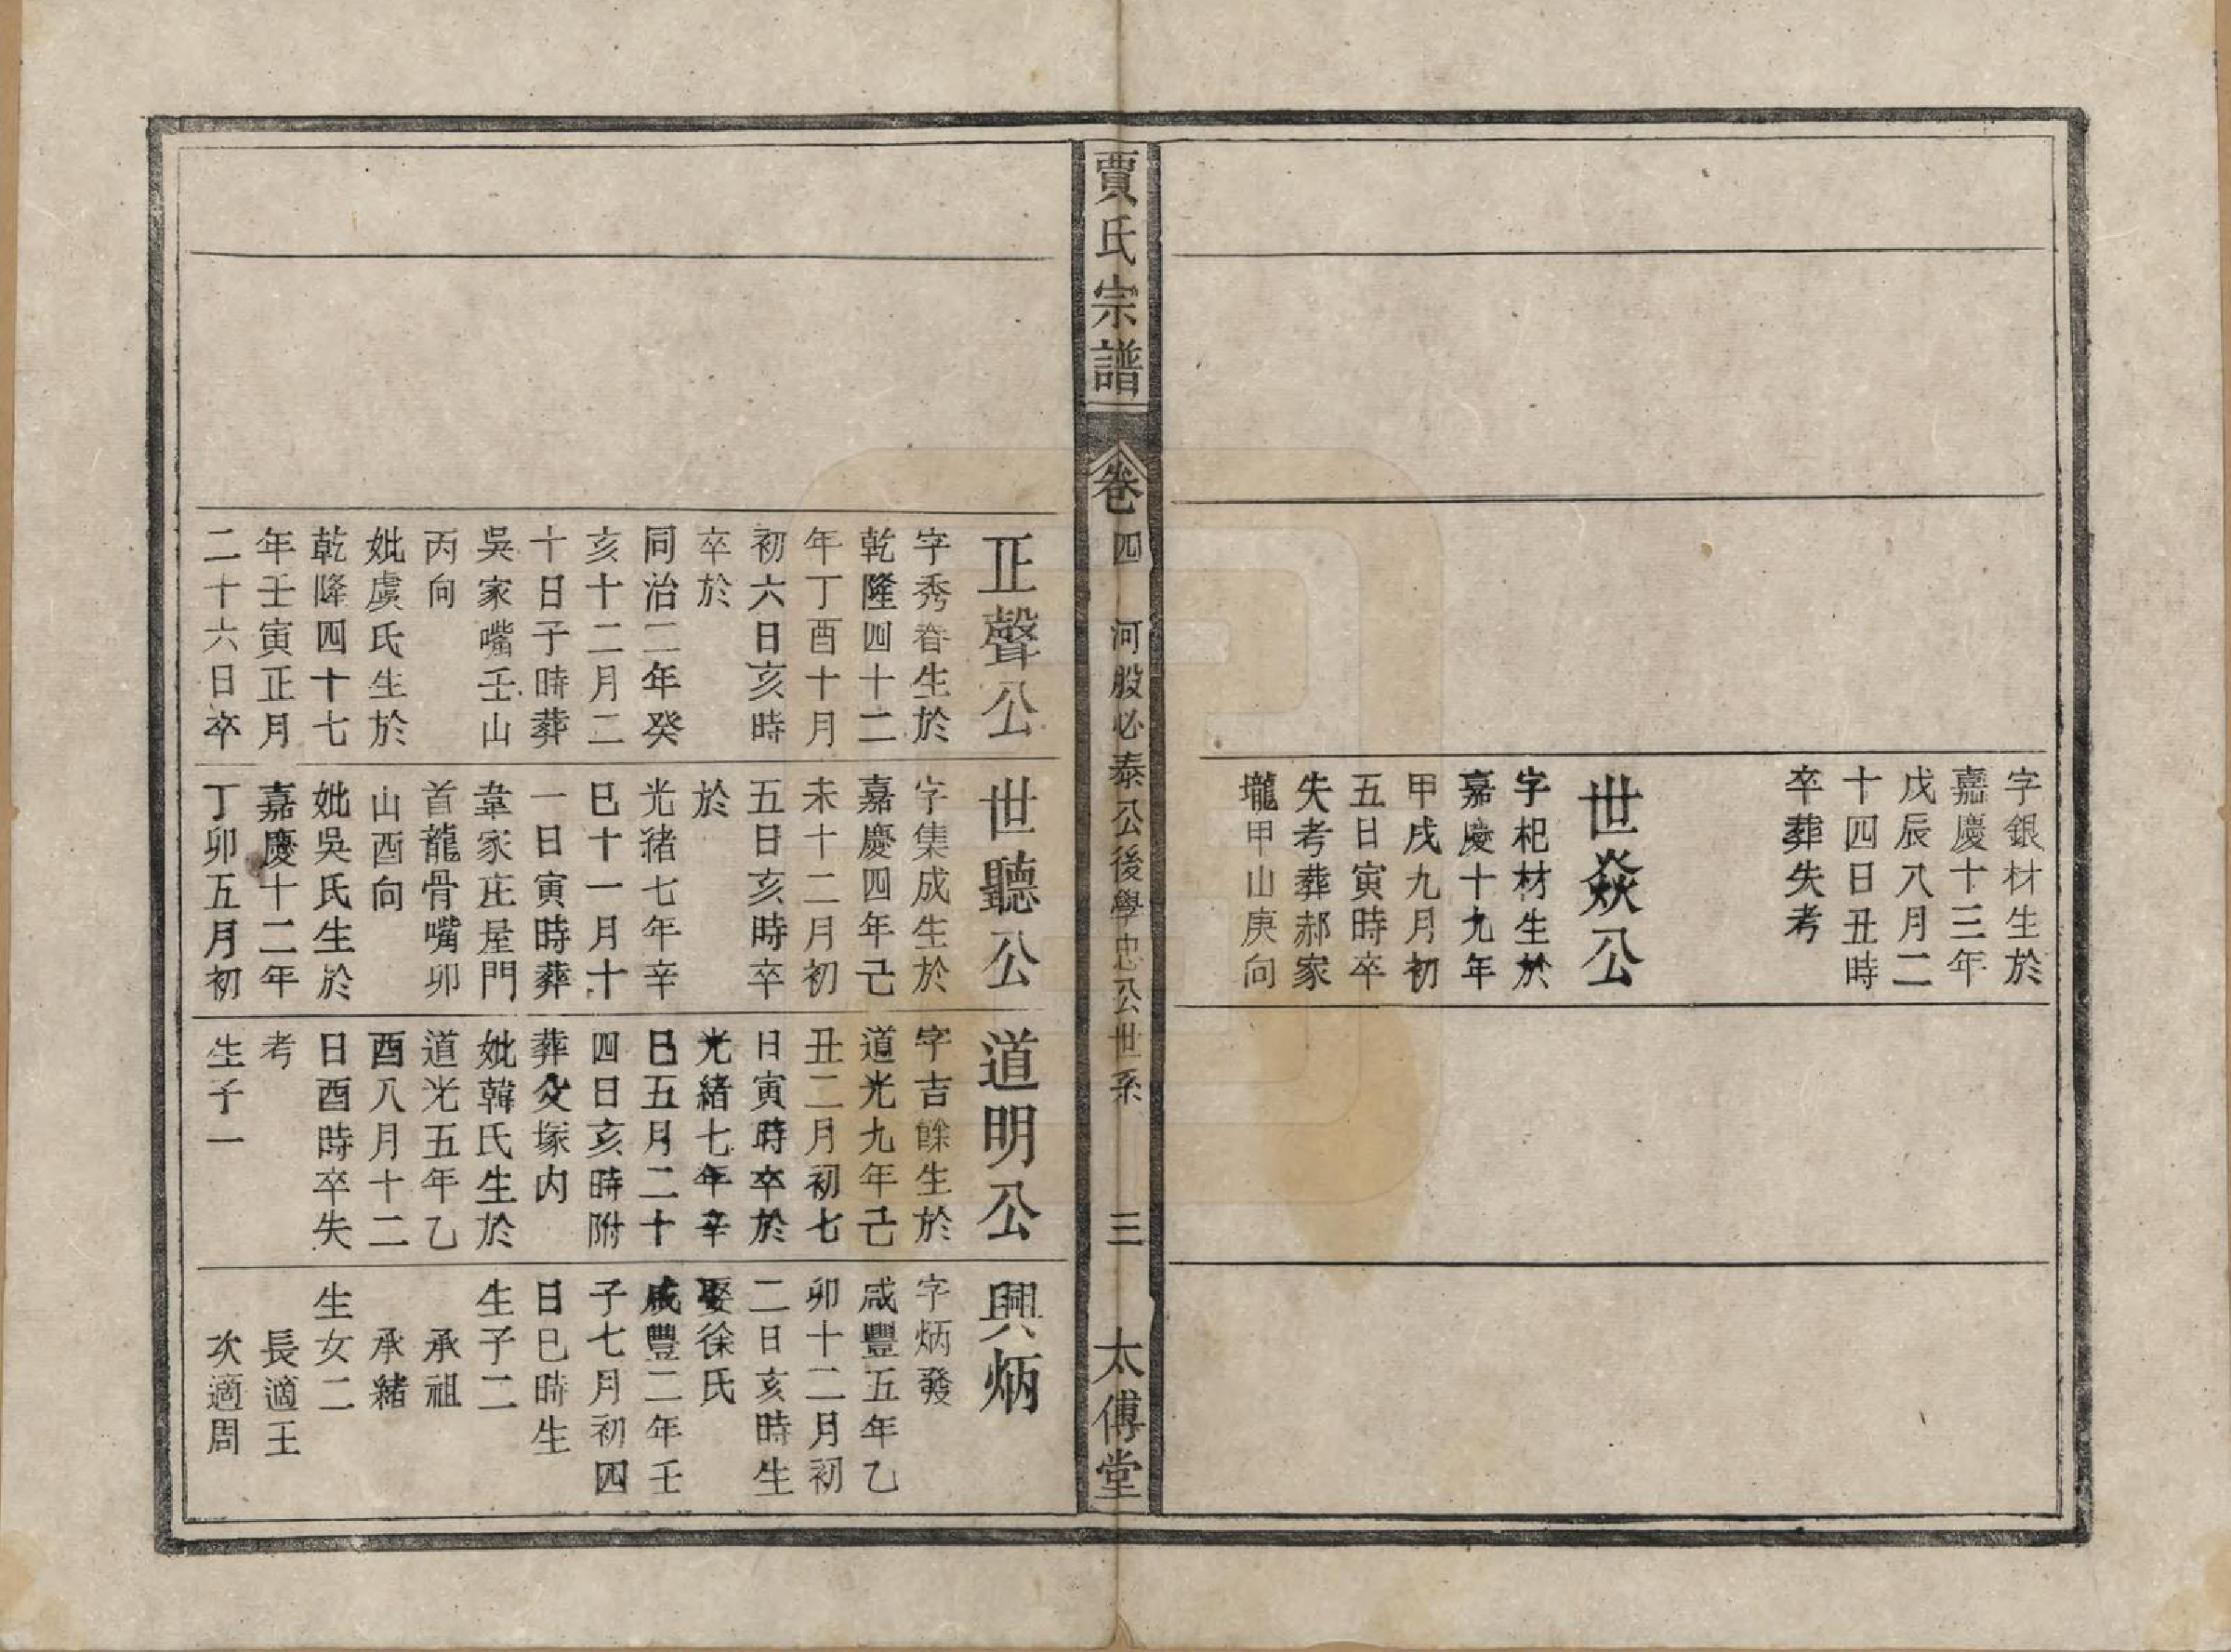 字銀材生於
嘉慶十三年
戊辰八月二
十四日丑時
卒葬失考
世焱公
字杞材生於
嘉慶十九年
甲戌九月初
五日寅時卒
失考葬郝家
壠甲山庚向
賈氏宗譜
卷四
河股必泰公後學忠公世系
三
太傅堂
正聲公
字秀春生於
乾隆四十二
年丁酉十月
初六日亥時
卒於
同治二年癸
亥十二月二
十日子時葬
吳家嘴壬山
丙向
妣虞氏生於
乾隆四十七
年壬寅正月
二十六日卒
世聽公
字集成生於
嘉慶四年己
未十二月初
五日亥時卒
於
光緒七年辛
巳十一月十
一日寅時葬
韋家庄屋門
首龍骨嘴卯
山酉向
妣吳氏生於
嘉慶十二年
丁卯五月初
道明公
字吉餘生於
道光九年己
丑二月初七
日寅時卒於
光緒七年辛
巳五月二十
四日亥時附
葬父塚内
妣韓氏生於
道光五年乙
酉八月十二
日酉時卒失
考
生子一
興炳
字炳發
咸豐五年乙
卯十二月初
二日亥時生
娶徐氏
咸豐二年壬
子七月初四
日巳時生
生子二
承祖
承緒
生女二
長適王
次適周